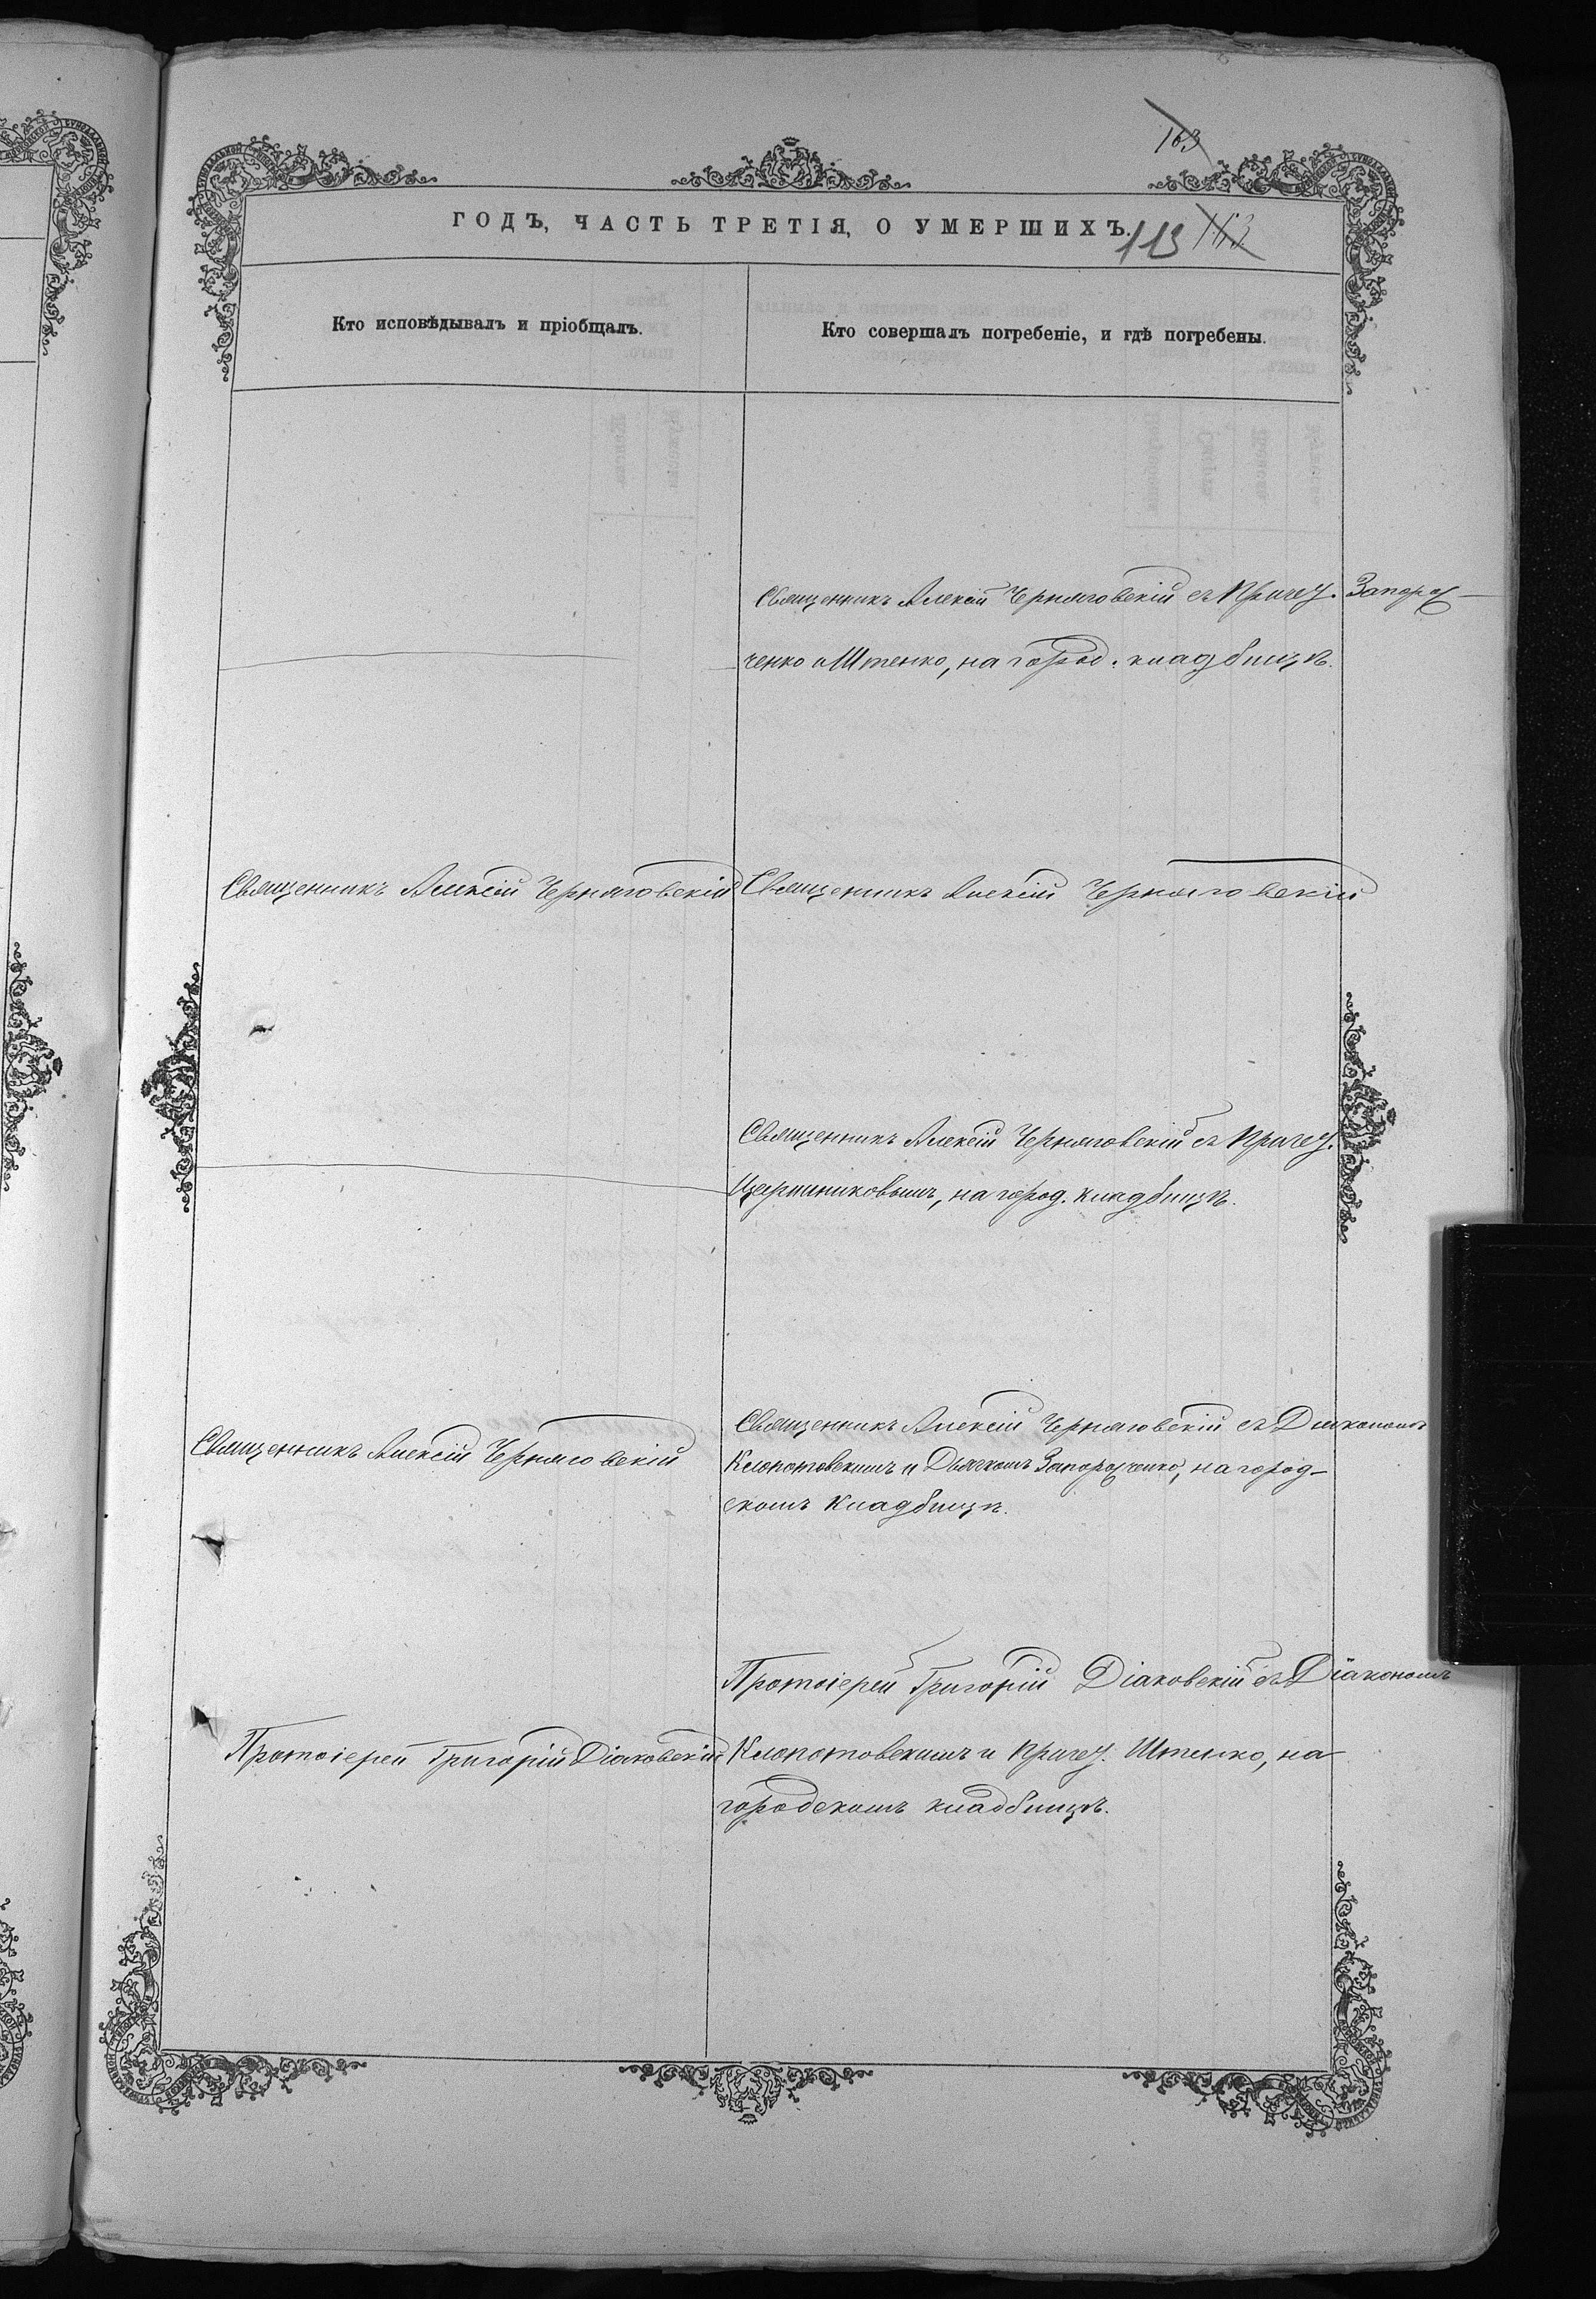 163
ГОДЪ, ЧАСТЬ ТРЕТІЯ, О УМЕРШИХЪ.
113 163
Кто исповѣдывалъ и пріобщалъ.
Кто совершалъ погребеніе, и гдѣ погребены.
Священникъ Алексій Черняговскій съ Причет. Запорож-
ченко и Штенко, на город. кладбищѣ.
Священникъ Алексій Черняговскій
Священникъ Алексій Черняговскій
Священникъ Алексій Черняговскій съ Причет.
на город. кладбищѣ.
Священникъ Алексій Черняговскій
Священникъ Алексій Черняговскій съ Діакономъ
Клопотовскимъ и Дьячкомъ Запорожченко, на город-
скомъ Кладбищѣ.
Протоіерей Григорій Діаковскій
Протоіерей Григорій Діаковскій съ Діакономъ
Клопотовскимъ и Причет. Штенко, на
городскомъ кладбищѣ.